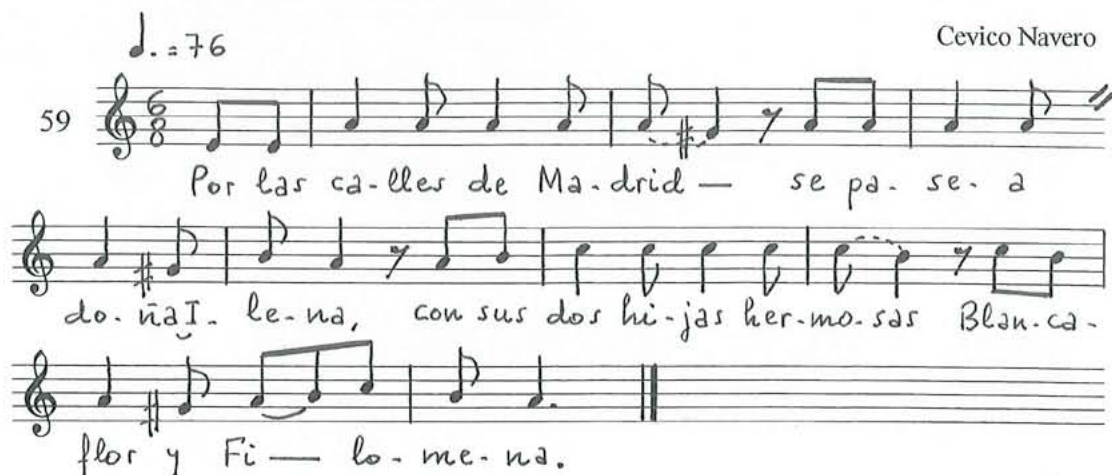 ♩. = 76
Cevico Navero
59
6
8
Por las ca-lles de Ma-drid — se pa-se-a
do-ñaI-le-na, con sus dos hi-jas her-mo-sas Blan-ca-
flor y Fi — lo-me-na.